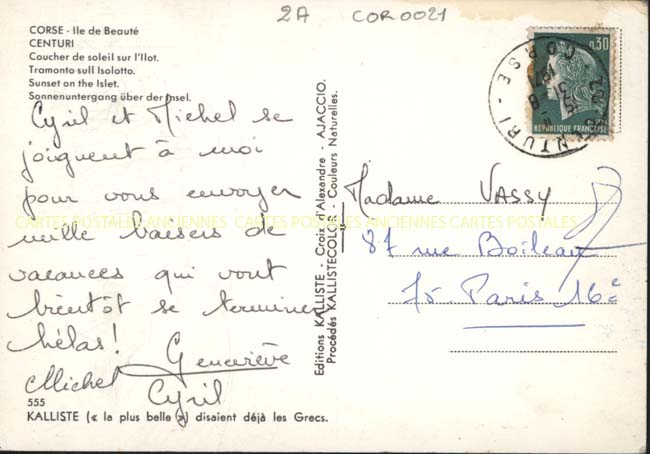 2A COR0021
CORSE - Ile de Beauté
CENTURI
Coucher de soleil sur l'Ilot.
Tramonto sull Isolotto.
Sunset on the Islet.
Sonnenuntergang über der Insel.
Cyril et Michel se
joignent à moi
pour vous envoyer
mille baisers de
vacances qui vont
bientôt se terminer
hélas!
Geneviève
Michel
Cyril
555
KALLISTE (« la plus belle ») disaient déjà les Grecs.
Editions KALLISTE - Croix d'Alexandre - AJACCIO.
Procédés KALLISTECOLOR - Couleurs Naturelles.
0,30
REPUBLIQUE FRANÇAISE
CENTURI - CORSE
Madame VASSY
87 rue Boileau
75 Paris 16e
CARTES POSTALES ANCIENNES CARTES POSTALES ANCIENNES CARTES POSTALES